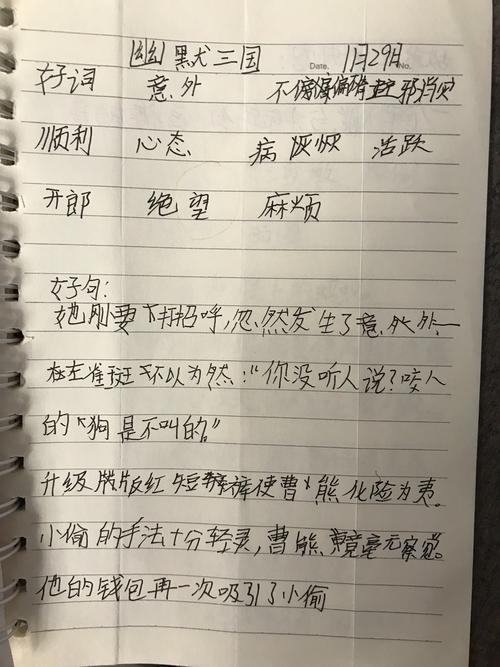 幽默三国 Date. 1月29日 No.
好词 意外 不偏
顺利 心态 病恹恹 活跃
开郎 绝望 麻烦
好句:
她刚要下打招呼,忽然发生了意外
杜左雀斑不以为然:“你没听人说?咬人
的“狗是不叫的。”
升级版红短裤使曹熊化险为夷。
小偷的手法十分轻灵,曹熊竟毫无察觉。
他的钱包再一次吸引了小偷